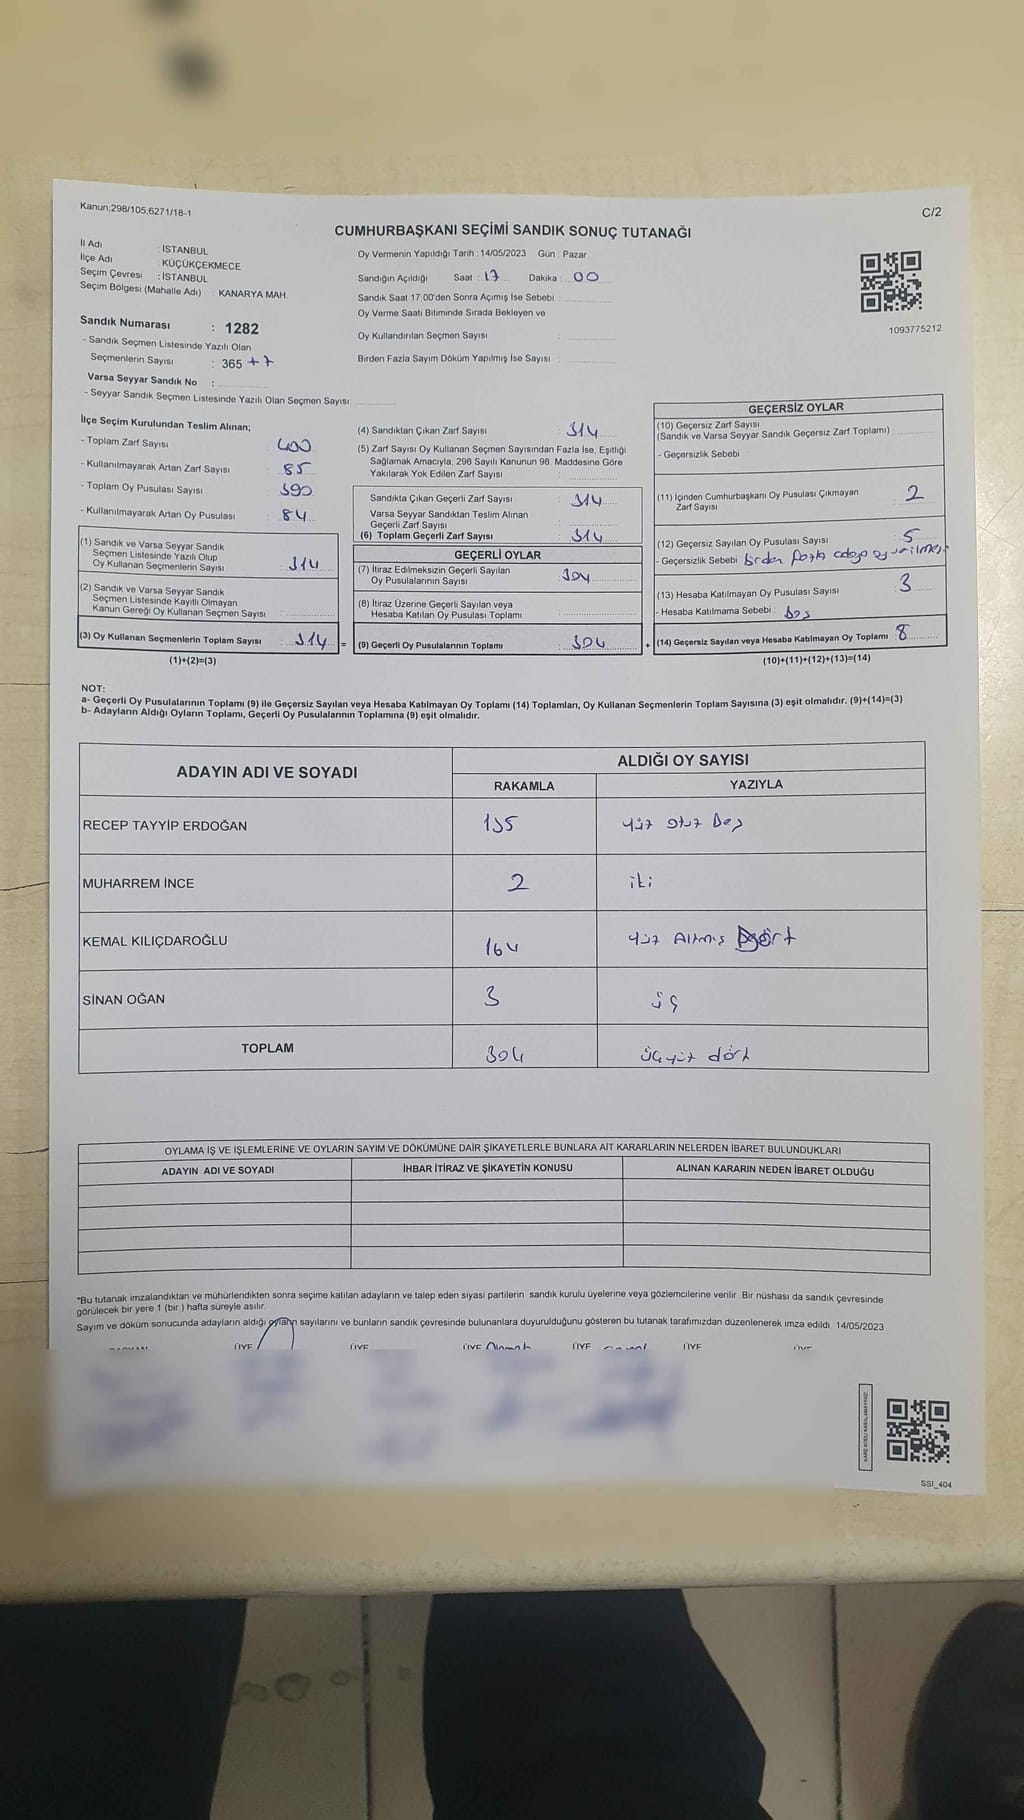 Kanun;298/105,6271/18-1
C/2
CUMHURBAŞKANI SEÇİMİ SANDIK SONUÇ TUTANAĞI
İl Adı : İSTANBUL
İlçe Adı : KÜÇÜKÇEKMECE
Seçim Çevresi : İSTANBUL
Seçim Bölgesi (Mahalle Adı) : KANARYA MAH.
Oy Vermenin Yapıldığı Tarih : 14/05/2023 Gün : Pazar
Sandığın Açıldığı Saat : 17 Dakika : 00
Sandık Saat 17.00'den Sonra Açımış İse Sebebi :
Oy Verme Saati Bitiminde Sırada Bekleyen ve
Oy Kullandırılan Seçmen Sayısı :
Birden Fazla Sayım Döküm Yapılmış İse Sayısı :
1093775212
Sandık Numarası : 1282
- Sandık Seçmen Listesinde Yazılı Olan
Seçmenlerin Sayısı : 365 + 7
Varsa Seyyar Sandık No :
- Seyyar Sandık Seçmen Listesinde Yazılı Olan Seçmen Sayısı:
İlçe Seçim Kurulundan Teslim Alınan;
- Toplam Zarf Sayısı : 400
- Kullanılmayarak Artan Zarf Sayısı : 85
- Toplam Oy Pusulası Sayısı : 390
- Kullanılmayarak Artan Oy Pusulası : 84
(1) Sandık ve Varsa Seyyar Sandık
Seçmen Listesinde Yazılı Olup
Oy Kullanan Seçmenlerin Sayısı : 314
(2) Sandık ve Varsa Seyyar Sandık
Seçmen Listesinde Kayıtlı Olmayan
Kanun Gereği Oy Kullanan Seçmen Sayısı :
(3) Oy Kullanan Seçmenlerin Toplam Sayısı : 314 =
(1)+(2)=(3)
(4) Sandıktan Çıkan Zarf Sayısı : 314
(5) Zarf Sayısı Oy Kullanan Seçmen Sayısından Fazla İse, Eşitliği
Sağlamak Amacıyla, 298 Sayılı Kanunun 98. Maddesine Göre
Yakılarak Yok Edilen Zarf Sayısı :
Sandıkta Çıkan Geçerli Zarf Sayısı : 314
Varsa Seyyar Sandıktan Teslim Alınan
Geçerli Zarf Sayısı :
(6) Toplam Geçerli Zarf Sayısı : 314
GEÇERLİ OYLAR
(7) İtiraz Edilmeksizin Geçerli Sayılan
Oy Pusulalarının Sayısı : 304
(8) İtiraz Üzerine Geçerli Sayılan veya
Hesaba Katılan Oy Pusulası Toplamı :
(9) Geçerli Oy Pusulalarının Toplamı : 304 +
GEÇERSİZ OYLAR
(10) Geçersiz Zarf Sayısı
(Sandık ve Varsa Seyyar Sandık Geçersiz Zarf Toplamı) :
- Geçersizlik Sebebi :
(11) İçinden Cumhurbaşkanı Oy Pusulası Çıkmayan
Zarf Sayısı : 2
(12) Geçersiz Sayılan Oy Pusulası Sayısı : 5
- Geçersizlik Sebebi : birden fazla adaya oy
(13) Hesaba Katılmayan Oy Pusulası Sayısı : 3
- Hesaba Katılmama Sebebi : boş
(14) Geçersiz Sayılan veya Hesaba Katılmayan Oy Toplamı : 8
(10)+(11)+(12)+(13)=(14)
NOT:
a- Geçerli Oy Pusulalarının Toplamı (9) ile Geçersiz Sayılan veya Hesaba Katılmayan Oy Toplamı (14) Toplamları, Oy Kullanan Seçmenlerin Toplam Sayısına (3) eşit olmalıdır. (9)+(14)=(3)
b- Adayların Aldığı Oyların Toplamı, Geçerli Oy Pusulalarının Toplamına (9) eşit olmalıdır.
ADAYIN ADI VE SOYADI
ALDIĞI OY SAYISI
RAKAMLA YAZIYLA
RECEP TAYYİP ERDOĞAN 135 yüz otuz Beş
MUHARREM İNCE 2 iki
KEMAL KILIÇDAROĞLU 164 yüz Altmış Dört
SİNAN OĞAN 3 üç
TOPLAM 304 üçyüz dört
OYLAMA İŞ VE İŞLEMLERİNE VE OYLARIN SAYIM VE DÖKÜMÜNE DAİR ŞİKAYETLERLE BUNLARA AİT KARARLARIN NELERDEN İBARET BULUNDUKLARI
ADAYIN ADI VE SOYADI İHBAR İTİRAZ VE ŞİKAYETİN KONUSU ALINAN KARARIN NEDEN İBARET OLDUĞU
*Bu tutanak imzalandıktan ve mühürlendikten sonra seçime katılan adayların ve talep eden siyasi partilerin sandık kurulu üyelerine veya gözlemcilerine verilir. Bir nüshası da sandık çevresinde
görülecek bir yere 1 (bir ) hafta süreyle asılır.
Sayım ve döküm sonucunda adayların aldığı oyların sayılarını ve bunların sandık çevresinde bulunanlara duyurulduğunu gösteren bu tutanak tarafımızdan düzenlenerek imza edildi. 14/05/2023
BAŞKAN ÜYE ÜYE ÜYE ÜYE ÜYE ÜYE
SSI_404